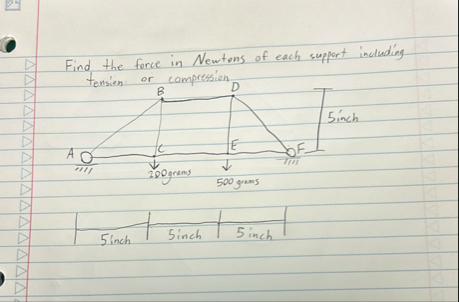 Find the force in Newtons of each support including
tension or compression
B D
5 inch
A C E F
200 grams
500 grams
5 inch 5 inch 5 inch